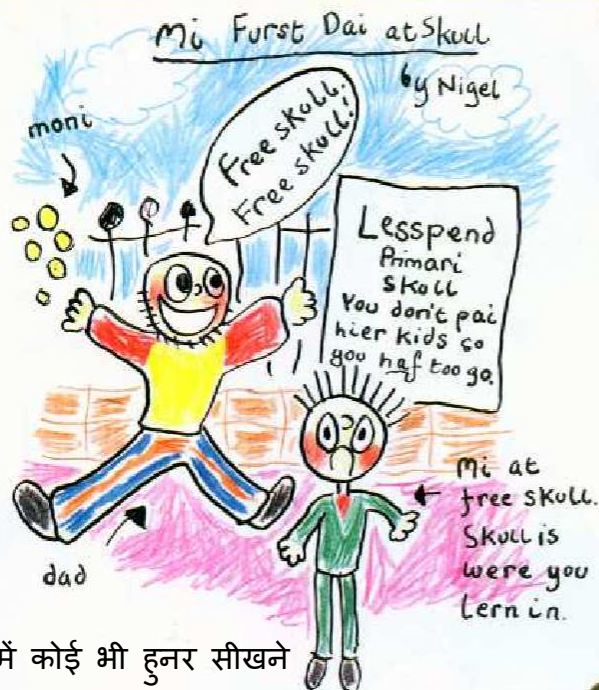 Mi Furst Dai at Skull
by Nigel
moni
Free skull.
Free skull!
Lesspend
Primari
Skull
You don't pai
hier kids so
you haf too go.
Mi at
free skull.
Skull is
were you
Lern in.
dad
में कोई भी हुनर सीखने